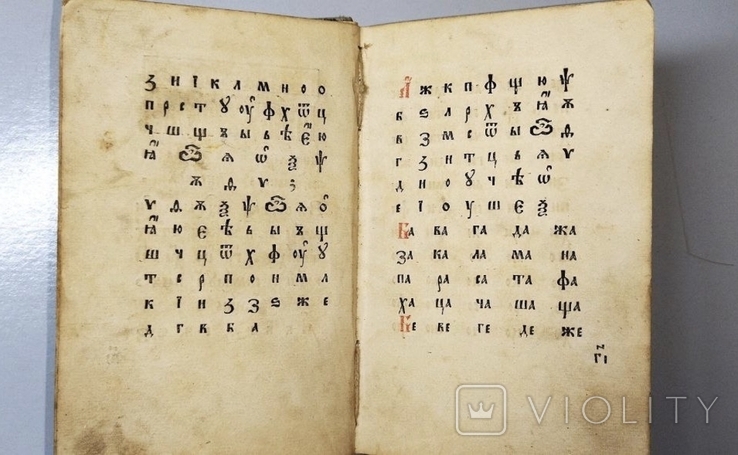 З н і к л м н о о
п р с т ꙋ оу ф х ѿ ц
ч ш щ ъ ы ь ѣ є ю
ꙗ ѽ ѧ ѡ ѯ ѱ
ѫ ѳ ѵ
ѵ ѳ ѫ ѯ ѱ ѽ ѧ о
ꙗ ю є ѣ ь ы ъ щ
ш ч ц ѿ х ф оу ꙋ
т с р п о н м л
к ї н ꙁ з ѕ ж е
д г в б а
А ж к п ф щ ю ѱ
б ѕ л р х ъ ꙗ ѫ
в з м с ѿ ы ѽ ѳ
г ꙁ н т ц ь ѧ ѵ
д и о ꙋ ч ѣ ѡ
е і о у ш є ѯ
Ба ва га да жа
за ка ла ма на
па ра са та фа
ха ца ча ша ща
Бе ве ге де же
гі
VIOLITY